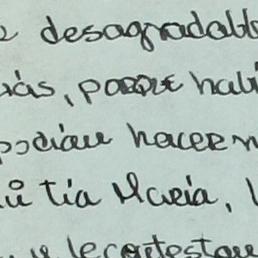 desagradable
porque habí
podían hacer
tía María,
le contestan